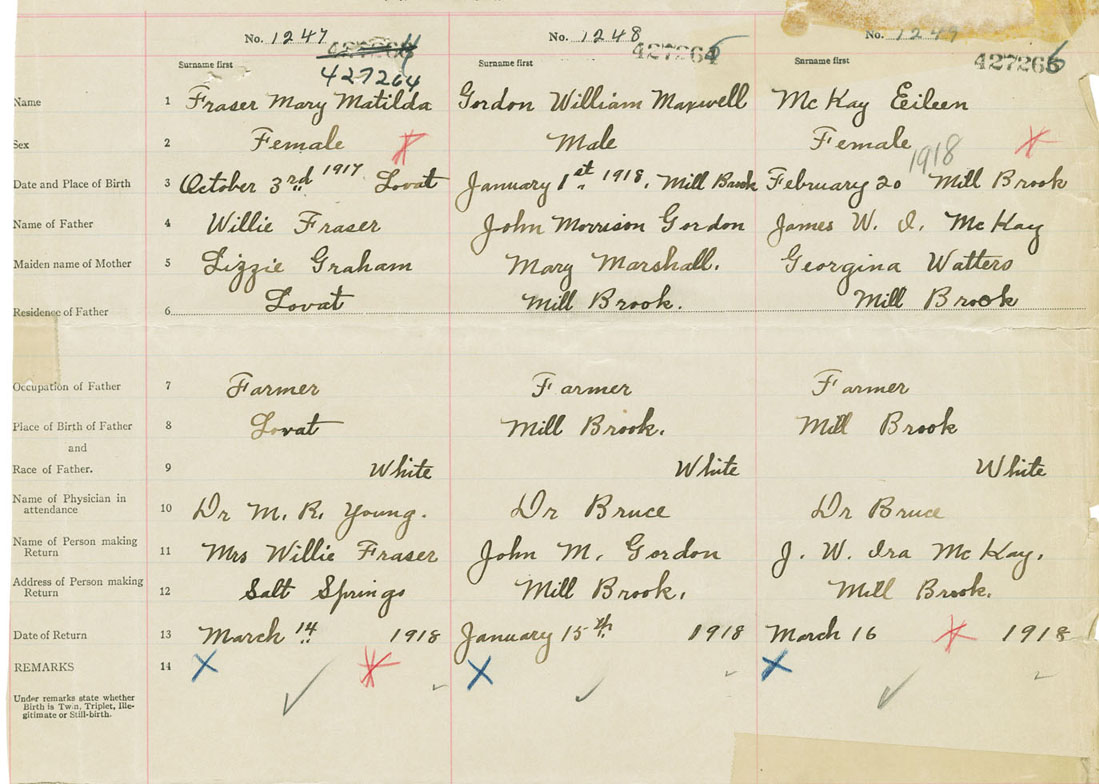 No. 1247 No. 1248 No. 1249
427264 427265
427264
Surname first Surname first Surname first
Name 1 Fraser Mary Matilda Gordon William Maxwell McKay Eileen
Sex 2 Female Male Female
1918
Date and Place of Birth 3 October 3rd 1917 Lovat January 1st 1918. Mill Brook February 20 Mill Brook
Name of Father 4 Willie Fraser John Morrison Gordon James W. I. McKay
Maiden name of Mother 5 Lizzie Graham Mary Marshall. Georgina Watters
Residence of Father 6 Lovat Mill Brook. Mill Brook
Occupation of Father 7 Farmer Farmer Farmer
Place of Birth of Father 8 Lovat Mill Brook. Mill Brook
and
Race of Father. 9 White White White
Name of Physician in
attendance 10 Dr M. R. Young. Dr Bruce Dr Bruce
Name of Person making
Return 11 Mrs Willie Fraser John M. Gordon J. W. Ira McKay.
Address of Person making
Return 12 Salt Springs Mill Brook. Mill Brook.
Date of Return 13 March 14 1918 January 15th 1918 March 16 1918
REMARKS 14
Under remarks state whether
Birth is Twin, Triplet, Ille-
gitimate or Still-birth.